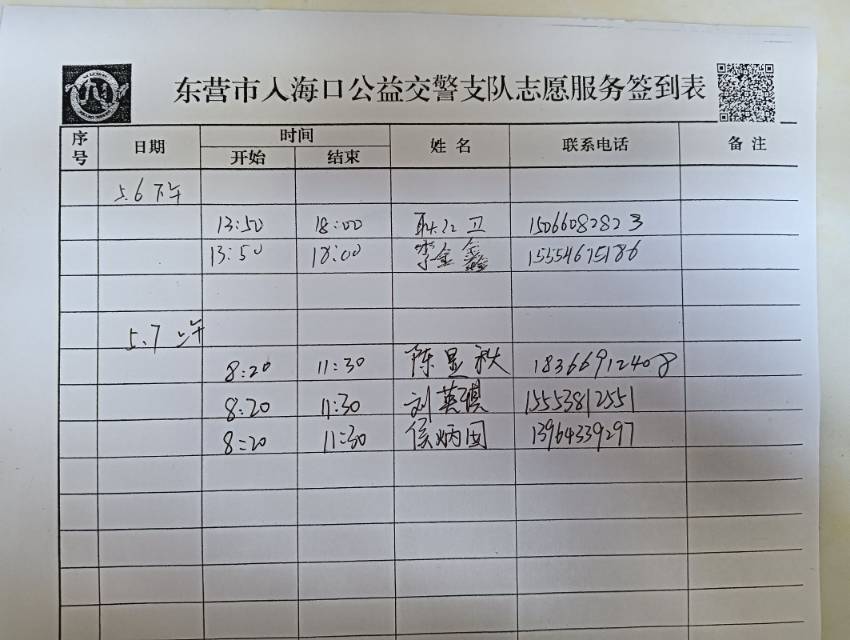 东营市入海口公益交警支队志愿服务签到表
序号 日期 时间 开始 结束 姓名 联系电话 备注
5.6 下午
13:50 18:00 耿江卫 15066082823
13:50 18:00 李金鑫 15554675186
5.7 上午
8:20 11:30 陈显秋 18366912408
8:20 11:30 刘英祺 15553812551
8:20 11:30 侯炳国 13964339297